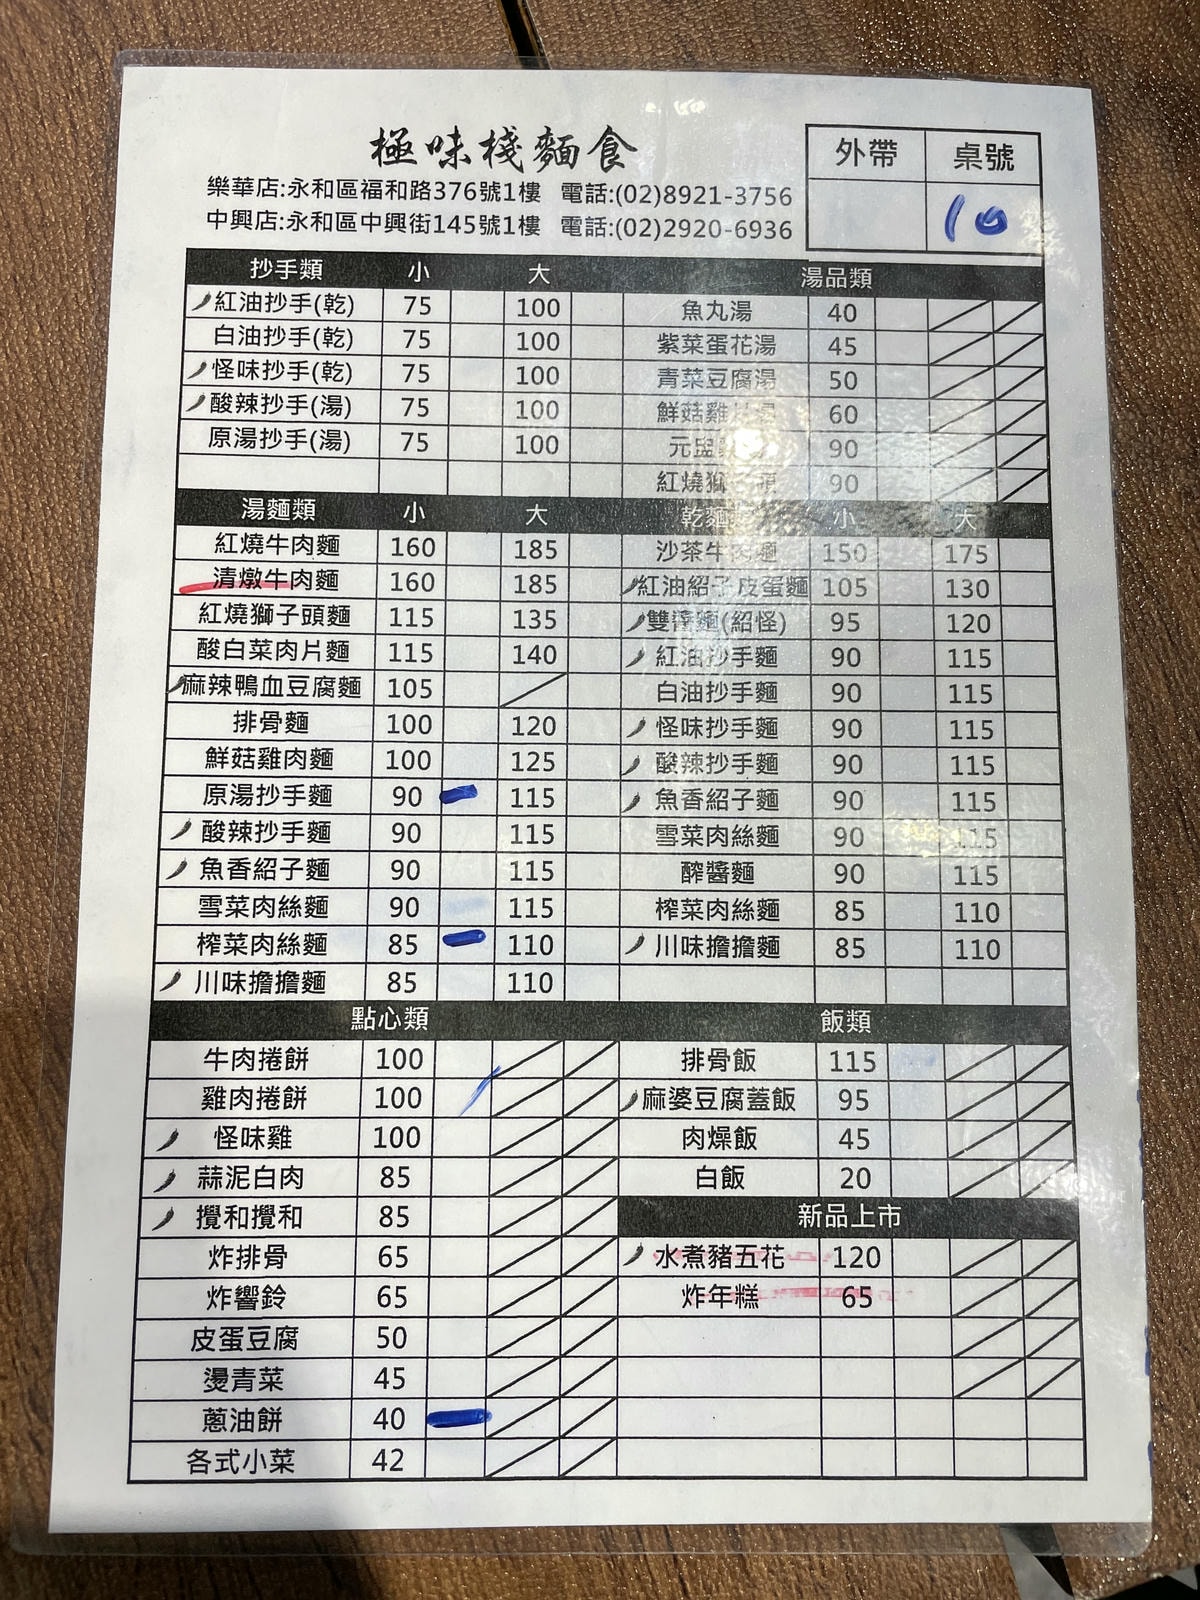 極味棧麵食
外帶 桌號
樂華店:永和區福和路376號1樓 電話:(02)8921-3756
中興店:永和區中興街145號1樓 電話:(02)2920-6936
10
抄手類 小 大
紅油抄手(乾) 75 100
白油抄手(乾) 75 100
怪味抄手(乾) 75 100
酸辣抄手(湯) 75 100
原湯抄手(湯) 75 100
湯品類
魚丸湯 40
紫菜蛋花湯 45
青菜豆腐湯 50
鮮菇雞片湯 60
元盅 90
紅燒獅 頭 90
湯麵類 小 大
紅燒牛肉麵 160 185
清燉牛肉麵 160 185
紅燒獅子頭麵 115 135
酸白菜肉片麵 115 140
麻辣鴨血豆腐麵 105
排骨麵 100 120
鮮菇雞肉麵 100 125
原湯抄手麵 90 115
酸辣抄手麵 90 115
魚香紹子麵 90 115
雪菜肉絲麵 90 115
榨菜肉絲麵 85 110
川味擔擔麵 85 110
乾麵類 小 大
沙茶牛肉麵 150 175
紅油紹子皮蛋麵 105 130
雙醬麵(紹怪) 95 120
紅油抄手麵 90 115
白油抄手麵 90 115
怪味抄手麵 90 115
酸辣抄手麵 90 115
魚香紹子麵 90 115
雪菜肉絲麵 90 115
醡醬麵 90 115
榨菜肉絲麵 85 110
川味擔擔麵 85 110
點心類
牛肉捲餅 100
雞肉捲餅 100
怪味雞 100
蒜泥白肉 85
攪和攪和 85
炸排骨 65
炸響鈴 65
皮蛋豆腐 50
燙青菜 45
蔥油餅 40
各式小菜 42
飯類
排骨飯 115
麻婆豆腐蓋飯 95
肉燥飯 45
白飯 20
新品上市
水煮豬五花 120
炸年糕 65